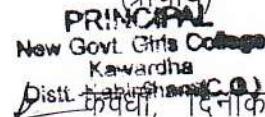 PRINCIPAL
New Govt. Girls College
Kawardha
Distt. Kabirdham (C.G.)
दिनांक